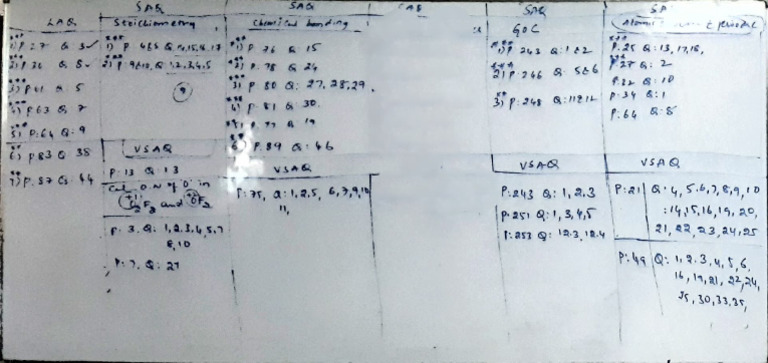 LAQ
1) P 27 Q 3 ✓
2) 36 Q 8
3) P 61 Q. 5
4) P 63 Q. 7
5) P: 64 Q: 9
6) P 83 Q 38
7) P. 87 Q: 44
SAQ
Stoichiometry
1) P
2) P Q: 1,2,3,4,5
9
VSAQ
P- 13 Q: 13
Cal O.N of 'O' in
and
P: 3, Q: 1,2,3,4,5,7
8,10
P: 7, Q: 27
SAQ
Chemical bonding
P 76 Q 15
P. 78 Q 24
3) P 80 Q: 27, 28, 29,
P. 81 Q 30.
Q 19
P. 89 Q: 46
VSAQ
P: 75, Q: 1,2,5, 6,7,9,10
11,
SAQ
GOC
1) P 243 Q: 1 & 2
2) P 246 Q: 5 & 6
3) P: 248 Q: 11 & 12
VSAQ
P: 243 Q: 1, 2, 3
P: 251 Q: 1, 3, 4, 5
P: 253 Q: 12.3, 12.4
P. 25 Q: 13, 17, 18,
Q: 2
P: 32 Q: 10
P: 34 Q: 1
P: 64 Q: 8
VSAQ
P: 21 Q: 4, 5, 6, 7, 8, 9, 10
14, 15, 16, 19, 20,
21, 22, 23, 24, 25
P: 49 Q: 1, 2, 3, 4, 5, 6,
16, 19, 21, 22, 24,
25, 30, 33, 35,